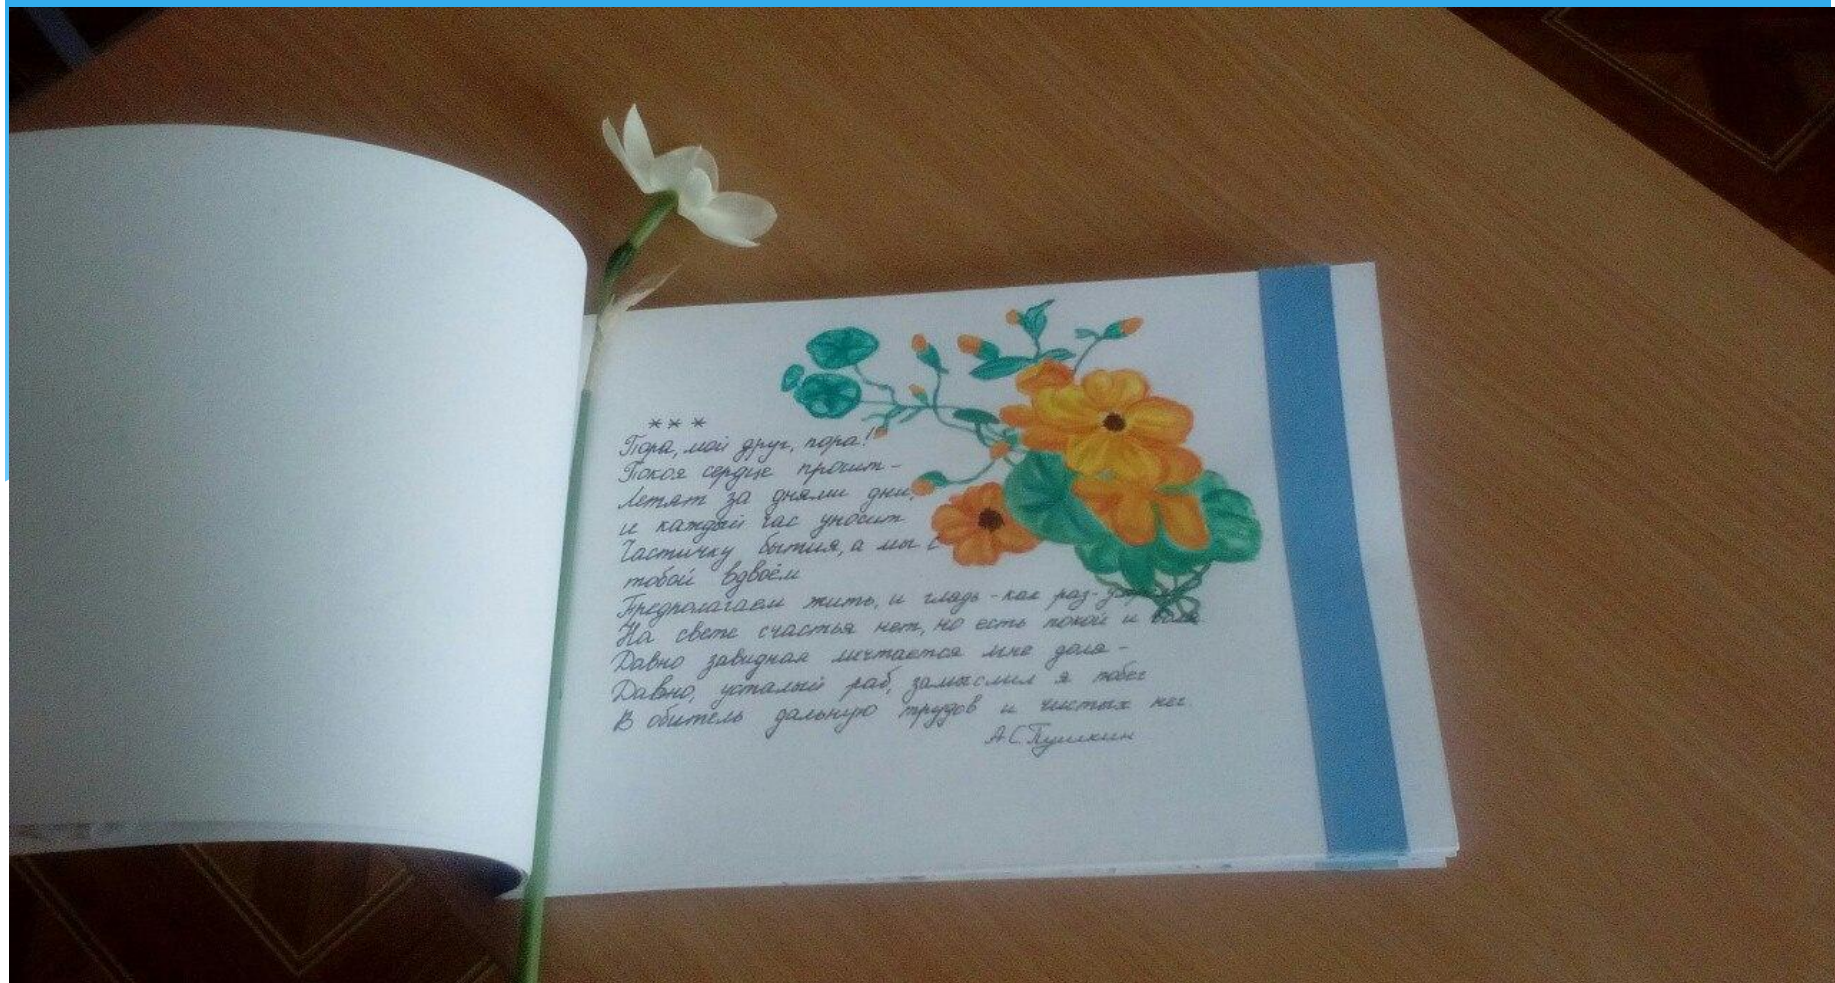 ***
Пора, мой друг, пора!
Покоя сердце просит -
Летят за днями дни,
и каждый час уносит
Частичку бытия, а мы с
тобой вдвоём
Предполагаем жить, и глядь - как раз -
На свете счастья нет, но есть покой и воля
Давно завидная мечтается мне доля -
Давно, усталый раб, замыслил я побег
В обитель дальную трудов и чистых нег.
А.С.Пушкин